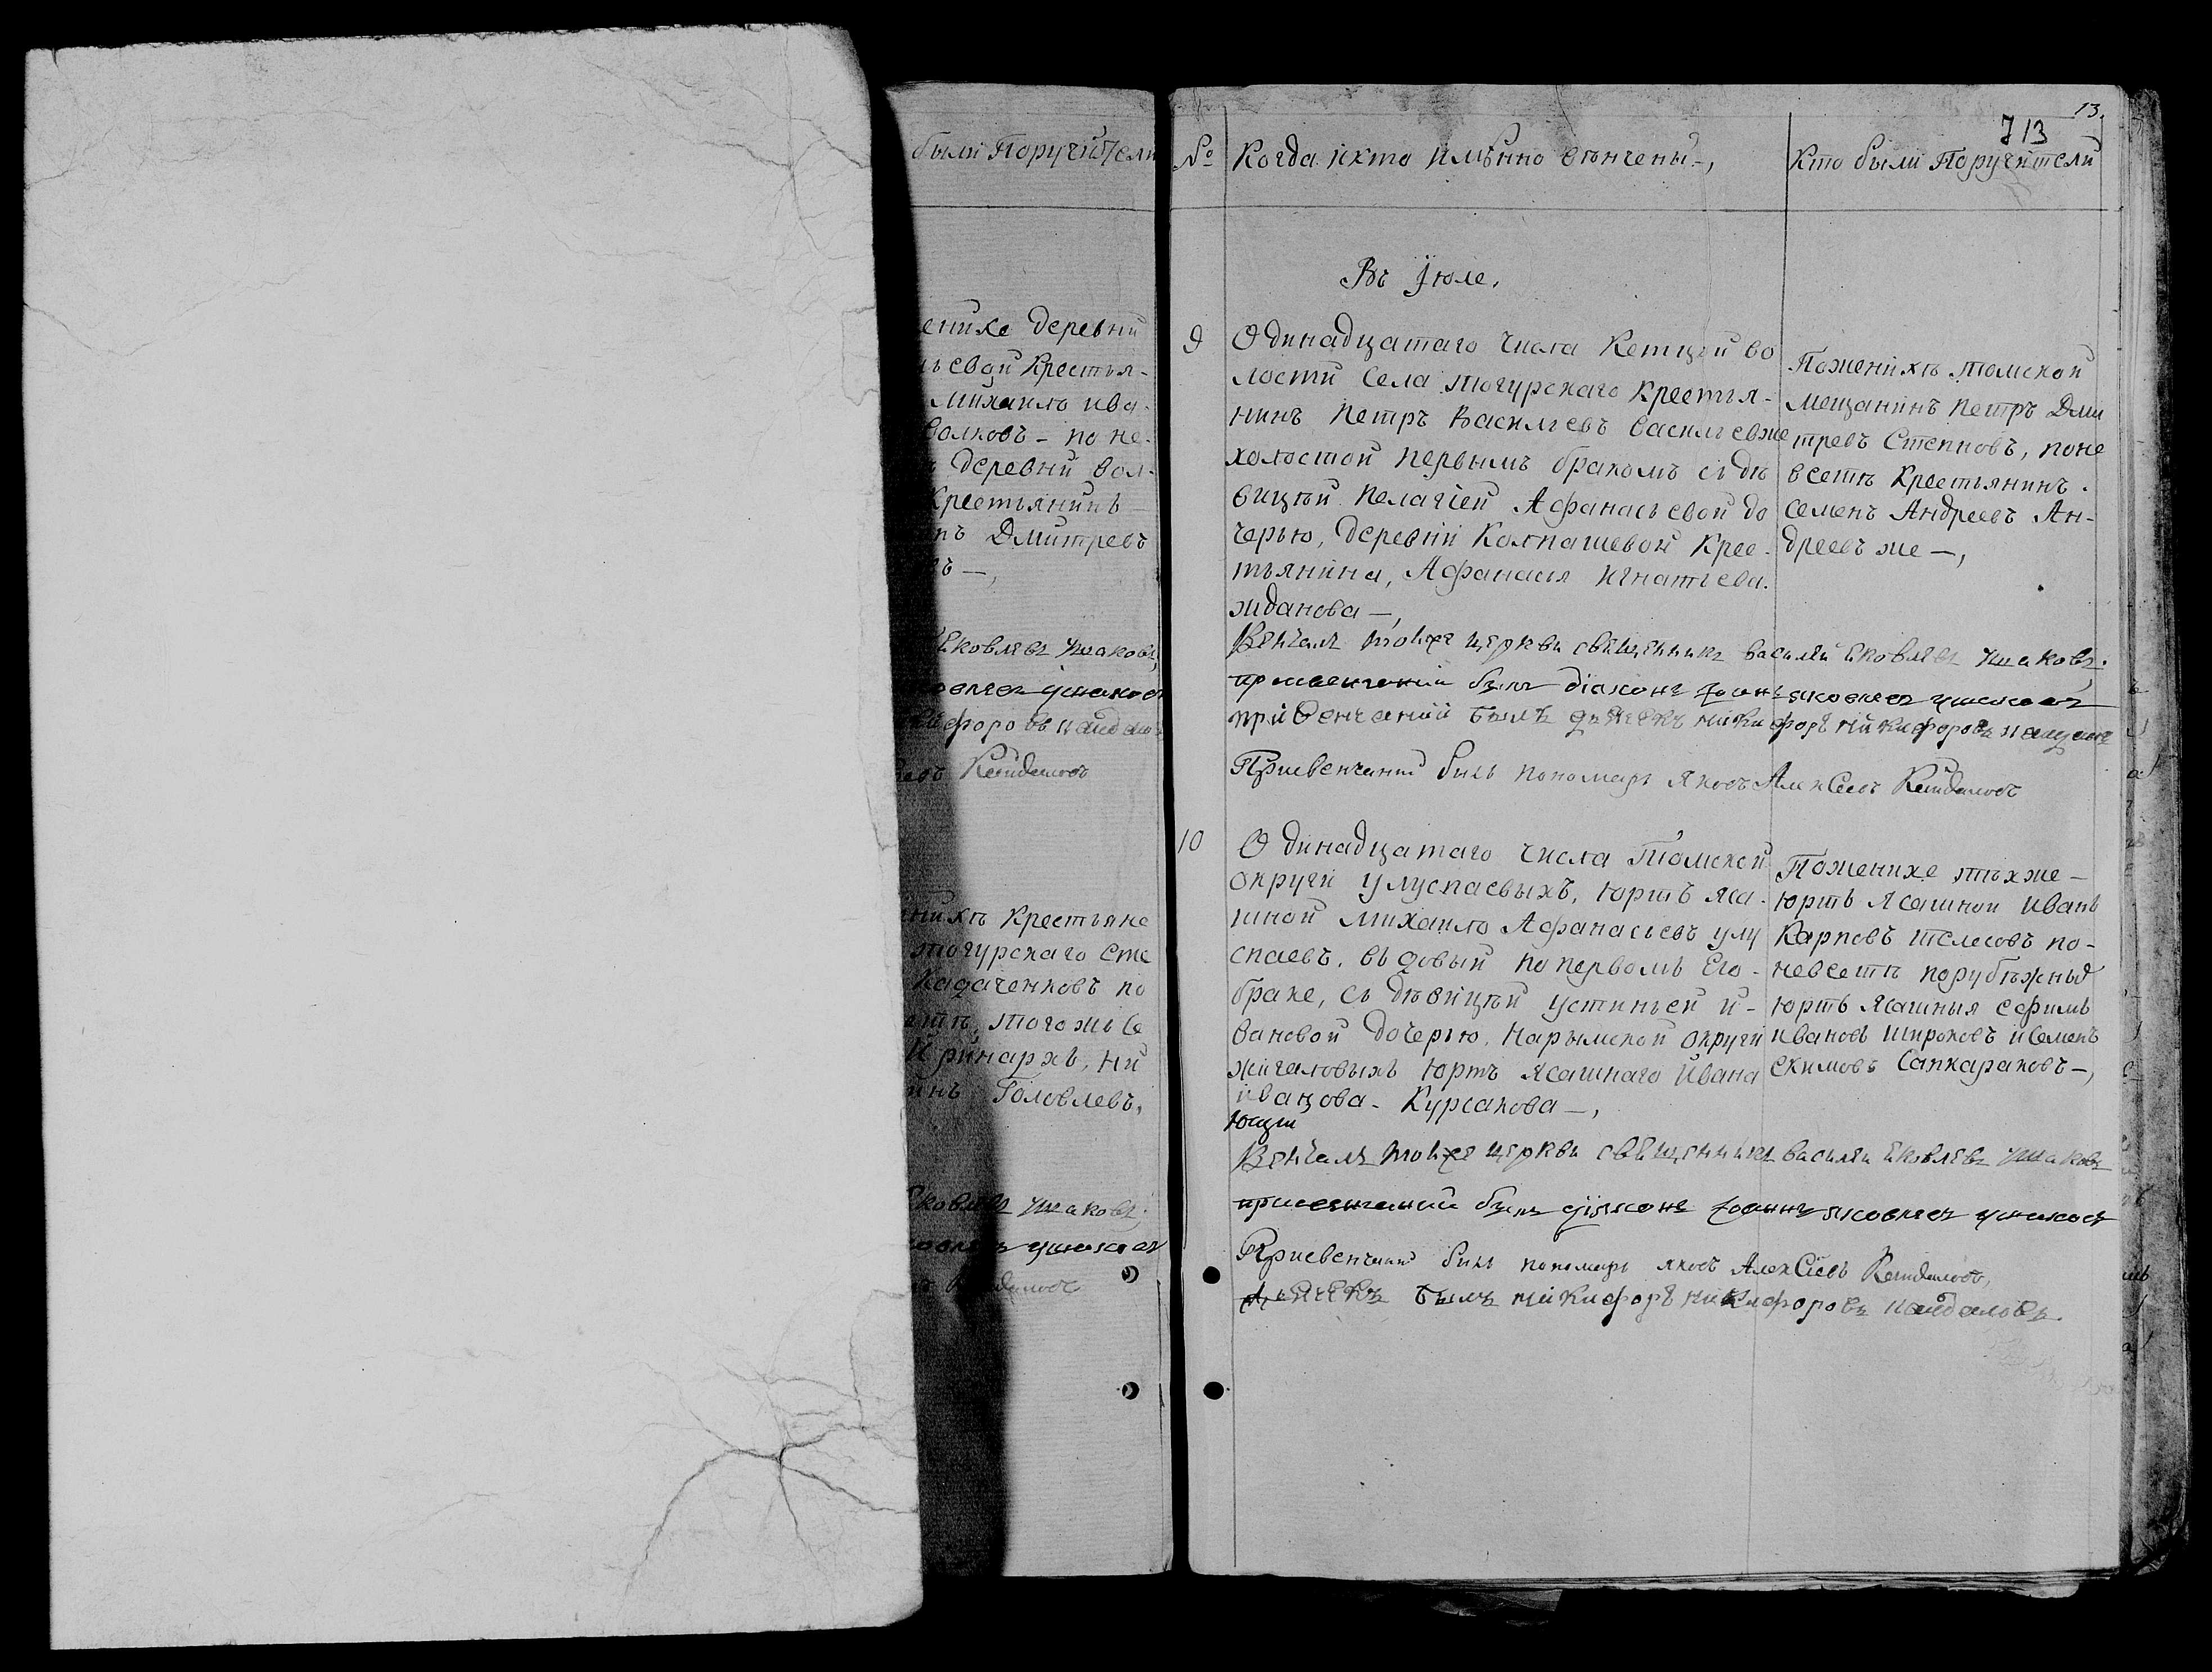 были Поручители
енихе деревни
ьевой Крестья-
Михаило ива-
Волковъ - по не-
деревни Вол-
Крестьянинъ
Дмитревъ
въ —,
Яковлевъ Ушаковъ
Яковлевъ Ушаковъ
Кайдаловъ
нихѣ Крестьяне
тогурскаго Сте
Кадаченковъ по
того же Се
Иринархъ, Ни
Головлевъ,
Яковлевъ Ушаковъ
Ушаковъ
13.
713
№ Когда икто имѣнно вѣнчены -, Кто были Поручители
Въ Іюле.
9 Одинадцатаго числа Кетцкой во
лости Села тогурскаго Крестья-
нинъ Петръ Васильевъ васильевже
холостой первымъ бракомъ съ дѣ
вицѣй Пелагіей Афанасьевой до
черью, деревни Колпашевой Крес-
тьянина, Афанасья Игнатьева.
жданова —,
Поженихѣ томской
мещанинъ Петръ Дми
тревъ Степновъ, поне
встѣ Крестьянинъ.
Семенъ Андреевъ Ан-
дреевъ же —,
Венчалъ тойже церкви священникъ василей Яковлевъ Ушаковъ.
привенчаний былъ діаконъ Іоаннъ яковлевъ ушаковъ
при венчаний былъ дьячекъ никифоръ никифоровъ кайдаловъ
Привенчании былъ пономарь Яковъ Алексеевъ Кайдаловъ
10 Одинадцатаго числа Томской
округи улуспаевыхъ, юртъ яса-
шной Михаило Афанасьевъ улу
спаевъ, вьдовый по первомъ Его-
браке, съ дѣвицѣй устиньей и-
вановой дочерью, Нарымской округи
жигаловыхъ юртъ Ясашнаго Ивана
иванова - Курсакова —,
Поженихе тѣхже -
юртъ Ясашной Иванъ
Карповъ телесовъ по-
невестѣ порубѣжныхъ
юртъ Ясашныя ефимъ
Ивановъ широковъ и Семенъ
екимовъ Сапкараковъ —,
Венчалъ тойже церкви священникъ василей Яковлевъ Ушаковъ
привенчаний былъ діяконъ Іоаннъ яковлевъ ушаковъ
Привенчании былъ пономарь яковъ Алексеевъ Кайдаловъ,
дьячекъ былъ никифоръ никифоровъ кайдаловъ.